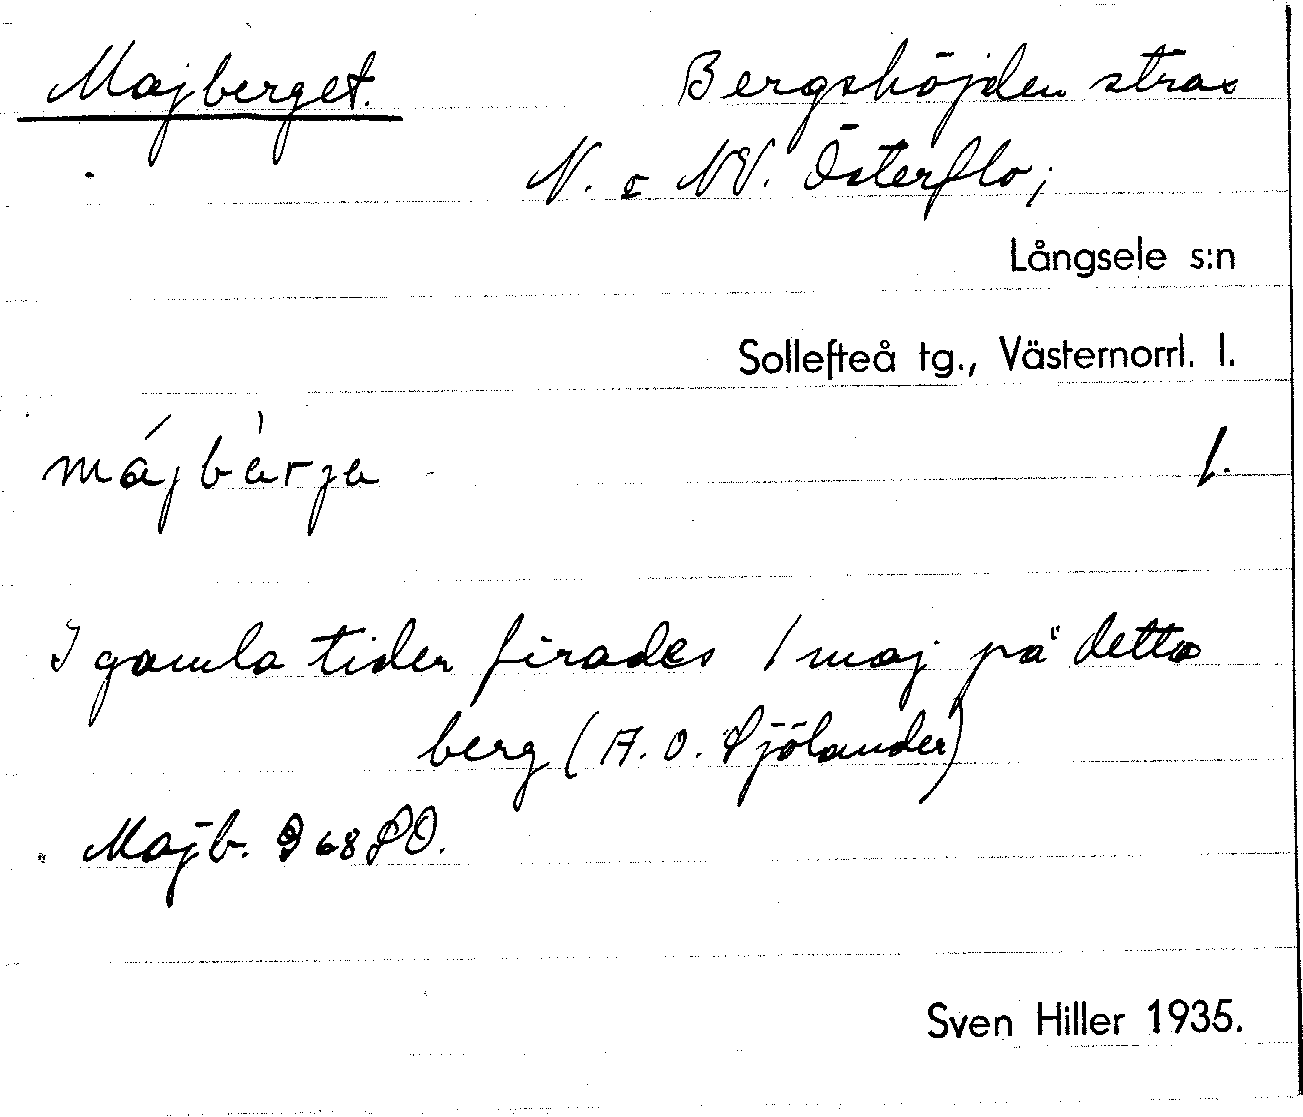 Majberget.
Bergshöjden strax
N. o NV. Österflo;
Långsele s:n
Sollefteå tg., Västernorrl. l.
májbàrja 1.
I gamla tider firades 1 maj på detta
berg (A. O. Sjölander)
Majb. 968
Sven Hiller 1935.